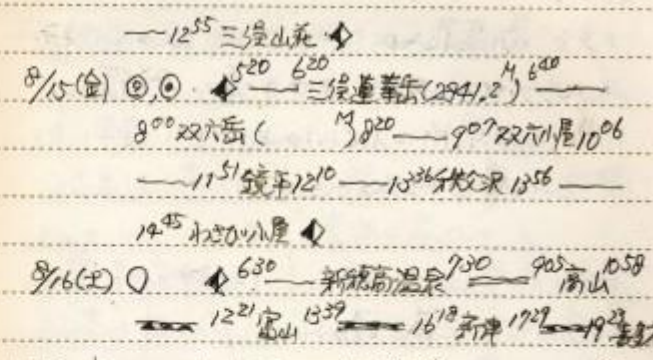 — 12⁵⁵ 三俣山荘
8/15(金) ◎,⦿ 5²⁰ — 6²⁰ 三俣蓮華岳(2841.2ᴹ) 6⁴⁰ —
8⁰⁰ 双六岳( ᴹ) 8²⁰ — 9⁰⁷ 双六小屋 10⁰⁶
— 11⁵¹ 鏡平 12¹⁰ — 13³⁶ 秩父沢 13⁵⁶ —
14⁴⁵ わさび小屋
8/16(土) ○ 6³⁰ — 新穂高温泉 7³⁰ = 9⁰⁵ 高山 10⁵⁸
12²¹ 富山 13³⁹ 16¹⁸ 新津 17²⁹ 19²³